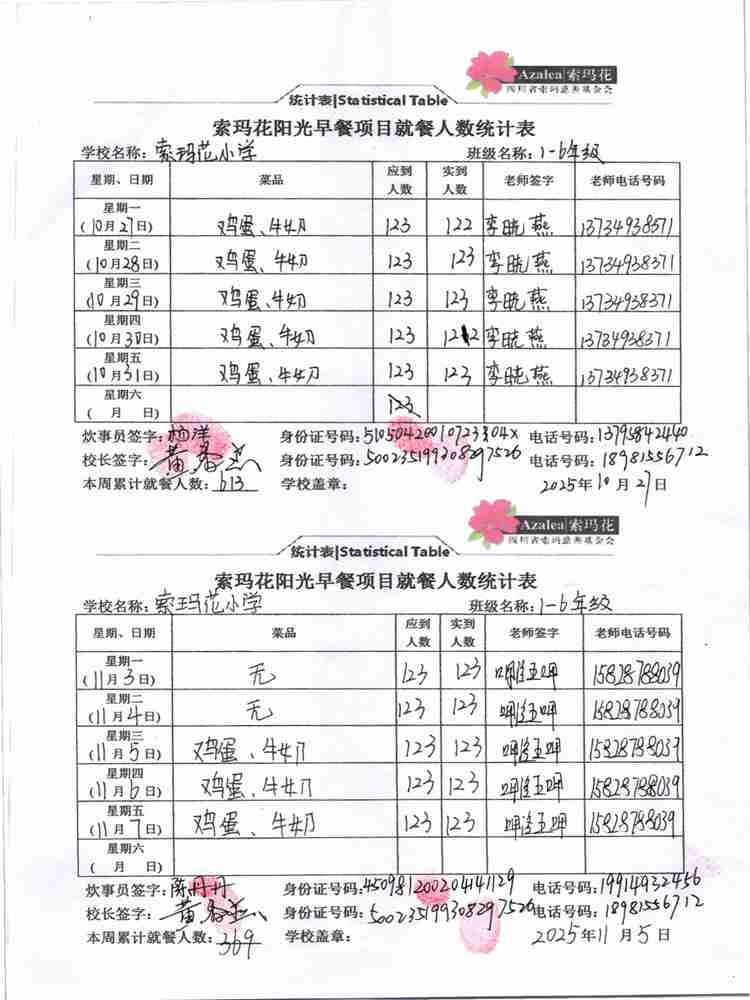 Azalea|索玛花
四川省索玛慈善基金会
统计表|Statistical Table
索玛花阳光早餐项目就餐人数统计表
学校名称：索玛花小学 班级名称：1-6年级
星期、日期 菜品 应到人数 实到人数 老师签字 老师电话号码
星期一 (10月27日) 鸡蛋、牛奶 123 122 李晓燕 13734938371
星期二 (10月28日) 鸡蛋、牛奶 123 123 李晓燕 13734938371
星期三 (10月29日) 鸡蛋、牛奶 123 123 李晓燕 13734938371
星期四 (10月30日) 鸡蛋、牛奶 123 122 李晓燕 13734938371
星期五 (10月31日) 鸡蛋、牛奶 123 123 李晓燕 13734938371
星期六 ( 月 日) 123
炊事员签字： 身份证号码： 电话号码：13795842440
校长签字： 身份证号码：500235199308297526 电话号码：18981556712
本周累计就餐人数：613 学校盖章： 2025年10月27日
Azalea|索玛花
四川省索玛慈善基金会
统计表|Statistical Table
索玛花阳光早餐项目就餐人数统计表
学校名称：索玛花小学 班级名称：1-6年级
星期、日期 菜品 应到人数 实到人数 老师签字 老师电话号码
星期一 (11月3日) 无 123 123 15828788039
星期二 (11月4日) 无 123 123 15828788039
星期三 (11月5日) 鸡蛋、牛奶 123 123 15828788039
星期四 (11月6日) 鸡蛋、牛奶 123 123 15828788039
星期五 (11月7日) 鸡蛋、牛奶 123 123 15828788039
星期六 ( 月 日)
炊事员签字：陈丹丹 身份证号码：450981200204141129 电话号码：19914932456
校长签字： 身份证号码：500235199308297526 电话号码：18981556712
本周累计就餐人数：369 学校盖章： 2025年11月5日